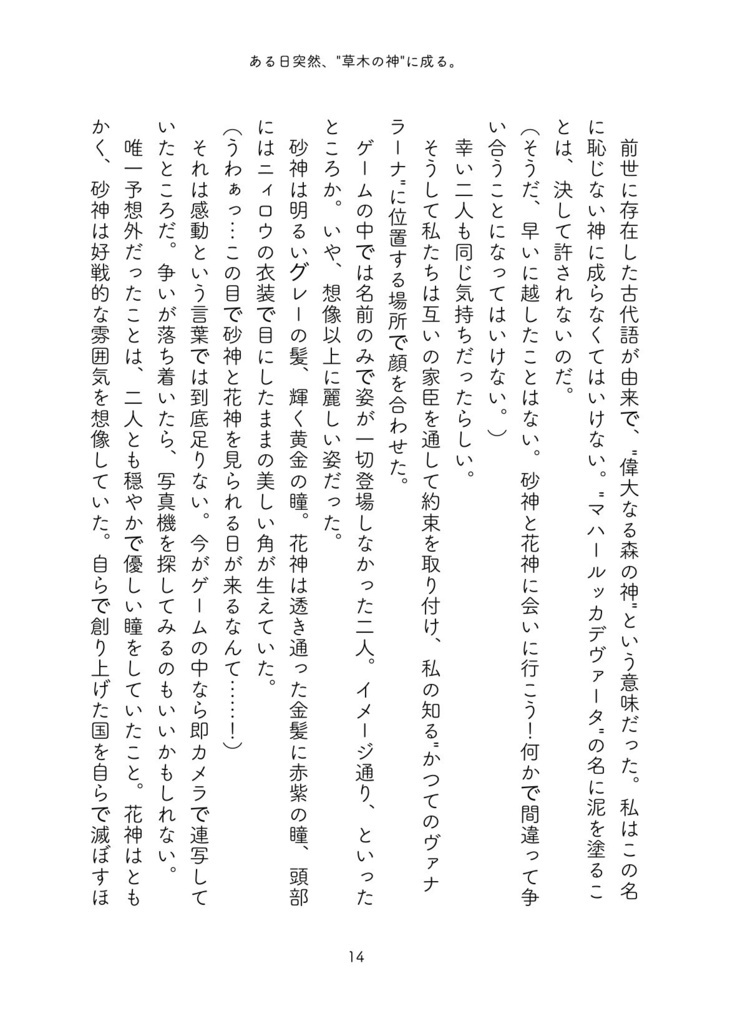 ある日突然、"草木の神"に成る。
前世に存在した古代語が由来で、"偉大なる森の神"という意味だった。私はこの名
に恥じない神に成らなくてはいけない。"マハールッカデヴァータ"の名に泥を塗るこ
とは、決して許されないのだ。
(そうだ、早いに越したことはない。砂神と花神に会いに行こう！何かで間違って争
い合うことになってはいけない。)
幸い二人も同じ気持ちだったらしい。
そうして私たちは互いの家臣を通して約束を取り付け、私の知る"かつてのヴァナ
ラーナ"に位置する場所で顔を合わせた。
ゲームの中では名前のみで姿が一切登場しなかった二人。イメージ通り、といった
ところか。いや、想像以上に麗しい姿だった。
砂神は明るいグレーの髪、輝く黄金の瞳。花神は透き通った金髪に赤紫の瞳、頭部
にはニィロウの衣装で目にしたままの美しい角が生えていた。
(うわぁっ…この目で砂神と花神を見られる日が来るなんて……！)
それは感動という言葉では到底足りない。今がゲームの中なら即カメラで連写して
いたところだ。争いが落ち着いたら、写真機を探してみるのもいいかもしれない。
唯一予想外だったことは、二人とも穏やかで優しい瞳をしていたこと。花神はとも
かく、砂神は好戦的な雰囲気を想像していた。自らで創り上げた国を自らで滅ぼすほ
14